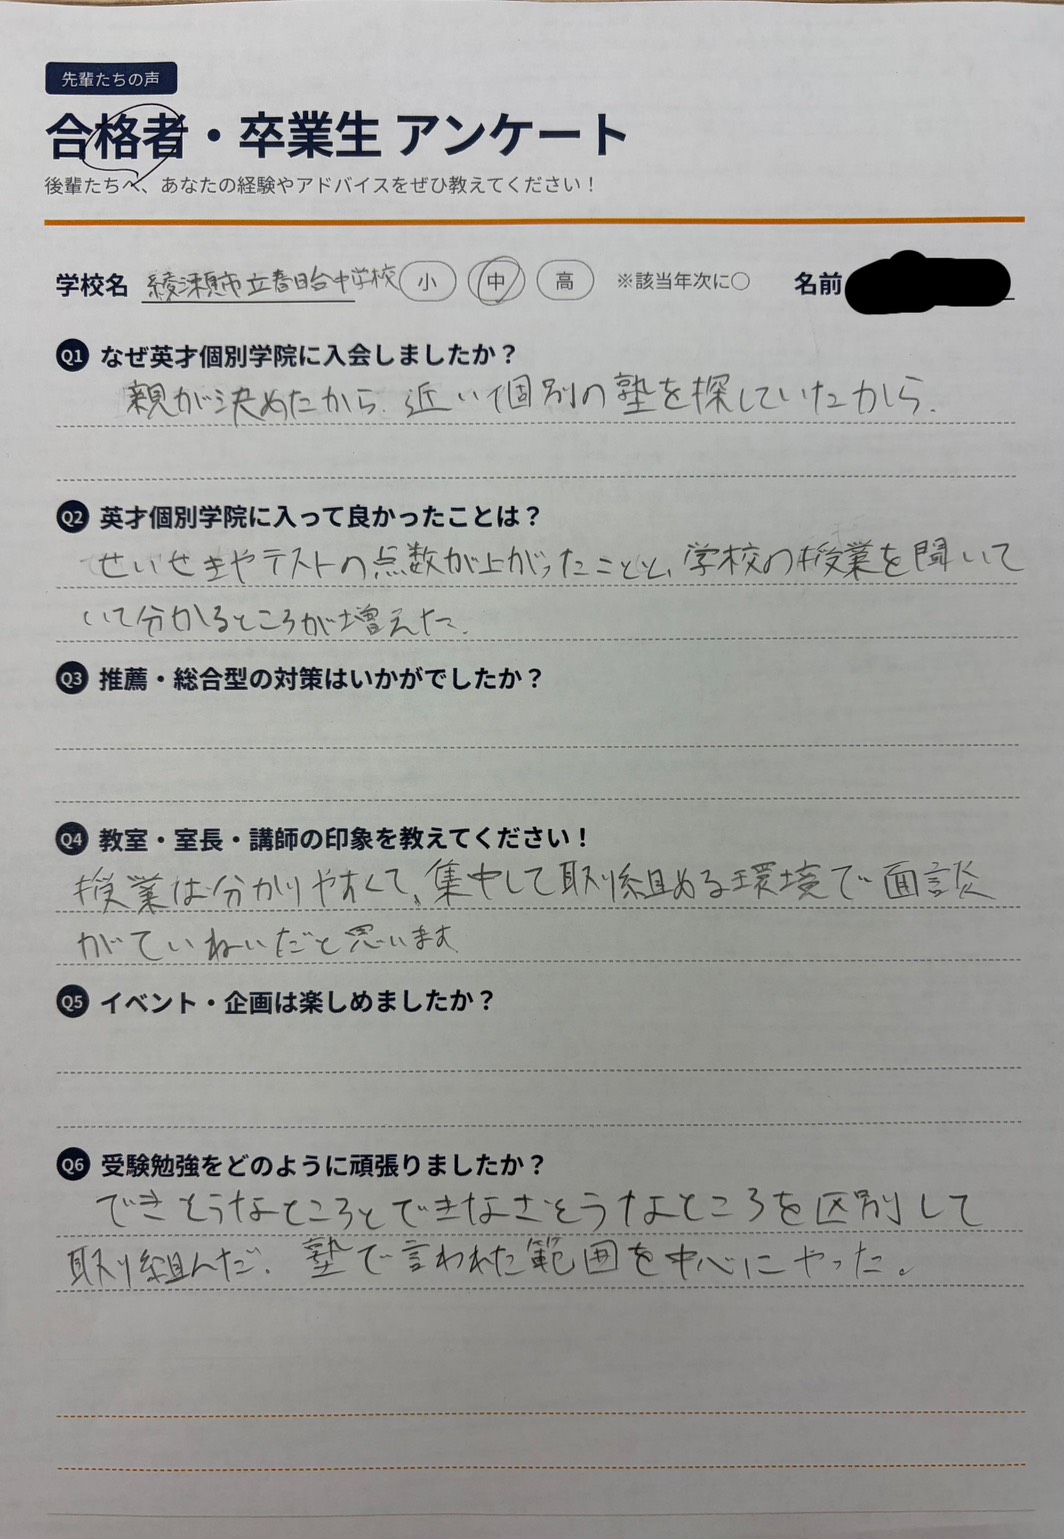 先輩たちの声
合格者・卒業生 アンケート
後輩たちへ、あなたの経験やアドバイスをぜひ教えてください！
学校名 綾瀬市立春日台中学校 小 中 高 ※該当年次に○ 名前
Q1 なぜ英才個別学院に入会しましたか？
親が決めたから. 近い個別の塾を探していたから.
Q2 英才個別学院に入って良かったことは？
せいせきやテストの点数が上がったことと、学校の授業を聞いて
いて分かるところが増えた.
Q3 推薦・総合型の対策はいかがでしたか？
Q4 教室・室長・講師の印象を教えてください！
授業は分かりやすくて、集中して取り組める環境で面談
がていねいだと思います
Q5 イベント・企画は楽しめましたか？
Q6 受験勉強をどのように頑張りましたか？
できそうなところとできなさそうなところを区別して
取り組んだ. 塾で言われた範囲を中心にやった。